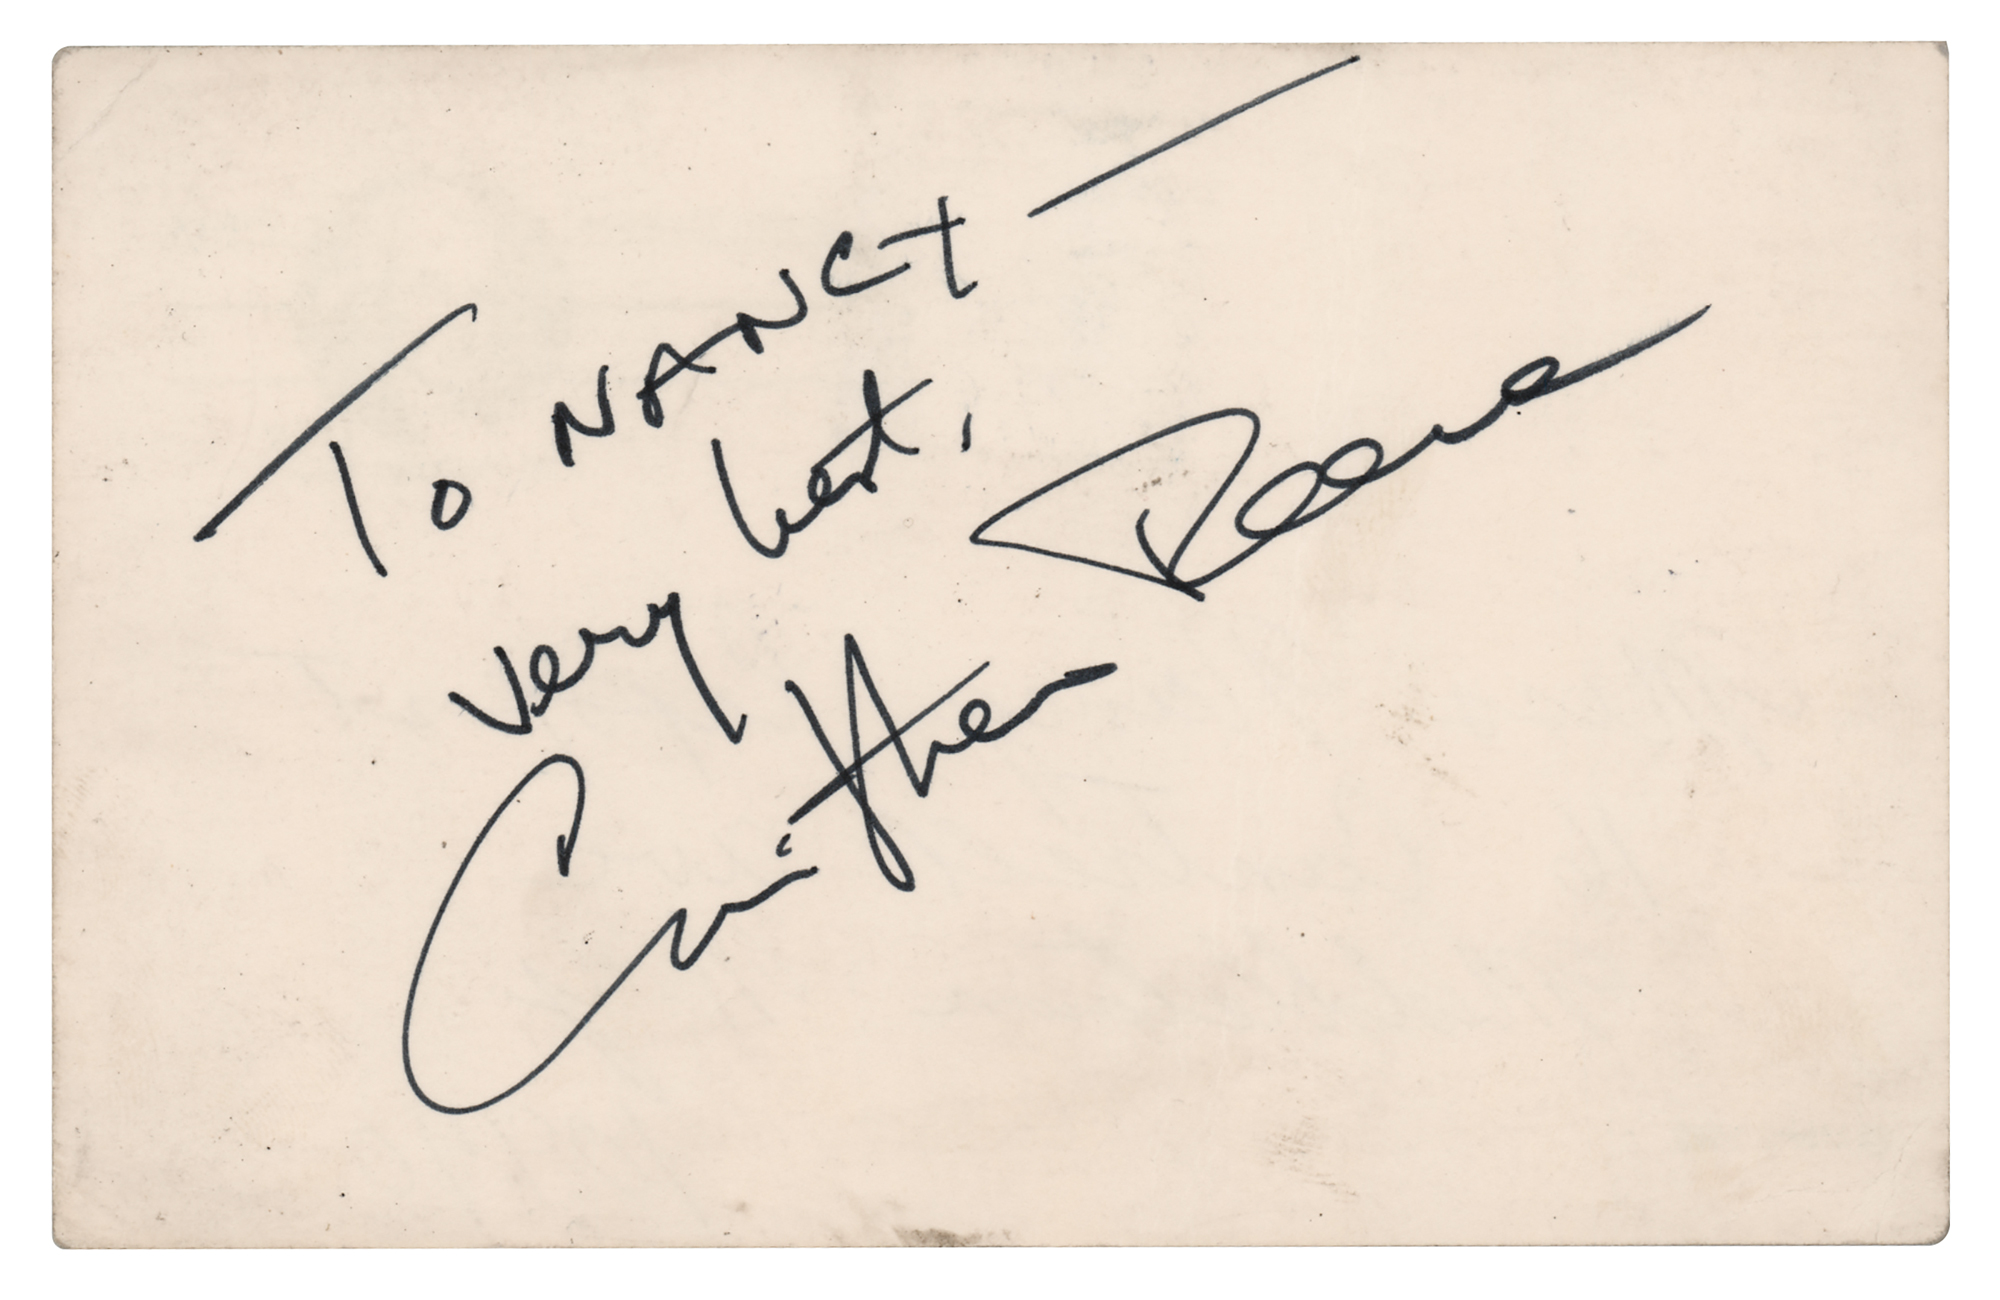 To NANCY —
very best,
Christopher Reeve